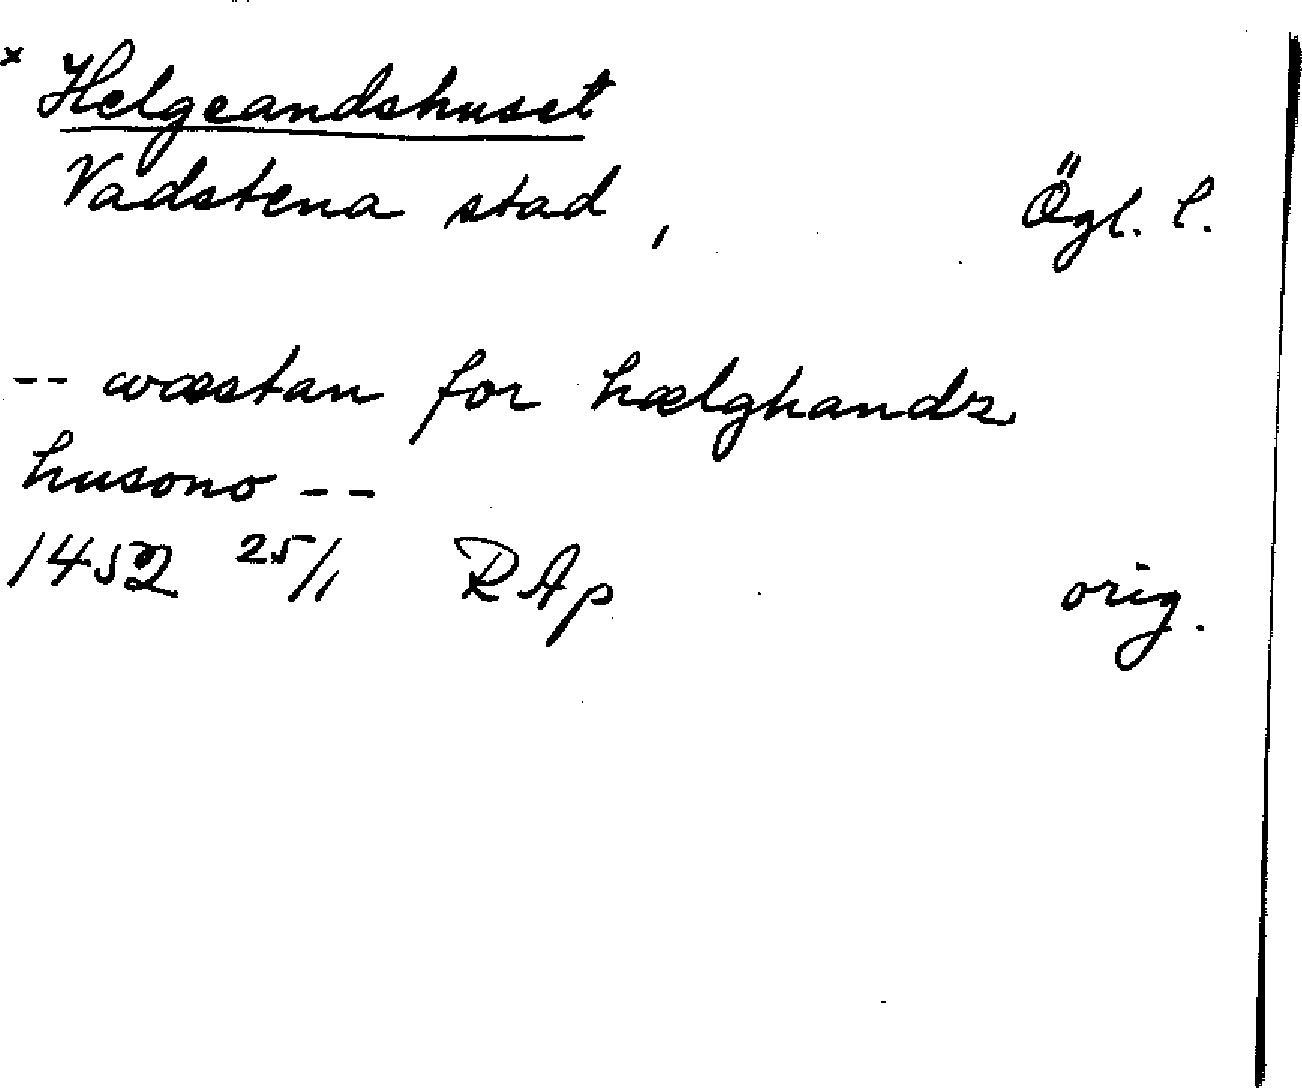 x Helgeandshuset
Vadstena stad, Ögl. l.
-- wæstan for hælghandz
husono --
1452 25/1 RAp orig.